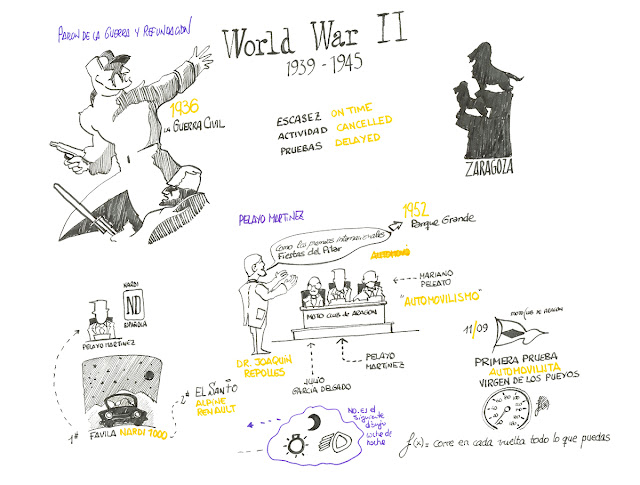 PARON DE LA GUERRA Y REFUNDACIÓN
World War II
1939 - 1945
1936
LA GUERRA CIVIL
ESCASEZ ON TIME
ACTIVIDAD CANCELLED
PRUEBAS DELAYED
ZARAGOZA
PELAYO MARTINEZ
1952
Parque Grande
Como los premios internacionales
Fiestas del Pilar
MARIANO
"AUTOMOVILISMO"
MOTO CLUB DE ARAGON
DR. JOAQUIN
REPOLLES
JULIO
GARCIA DELGADO
PELAYO
MARTINEZ
NARDI
ND
ESPAÑOLA
PELAYO MARTINEZ
EL SANTO
ALPINE
RENAULT
1º
FAVILA NARDI 1000
NO, es el
siguiente
dibujo
coche de
noche
MOTO CLUB DE ARAGON
11/09
PRIMERA PRUEBA
AUTOMOVILITA
VIRGEN DE LOS PUEYOS
f(x) = corre en cada vuelta todo lo que puedas